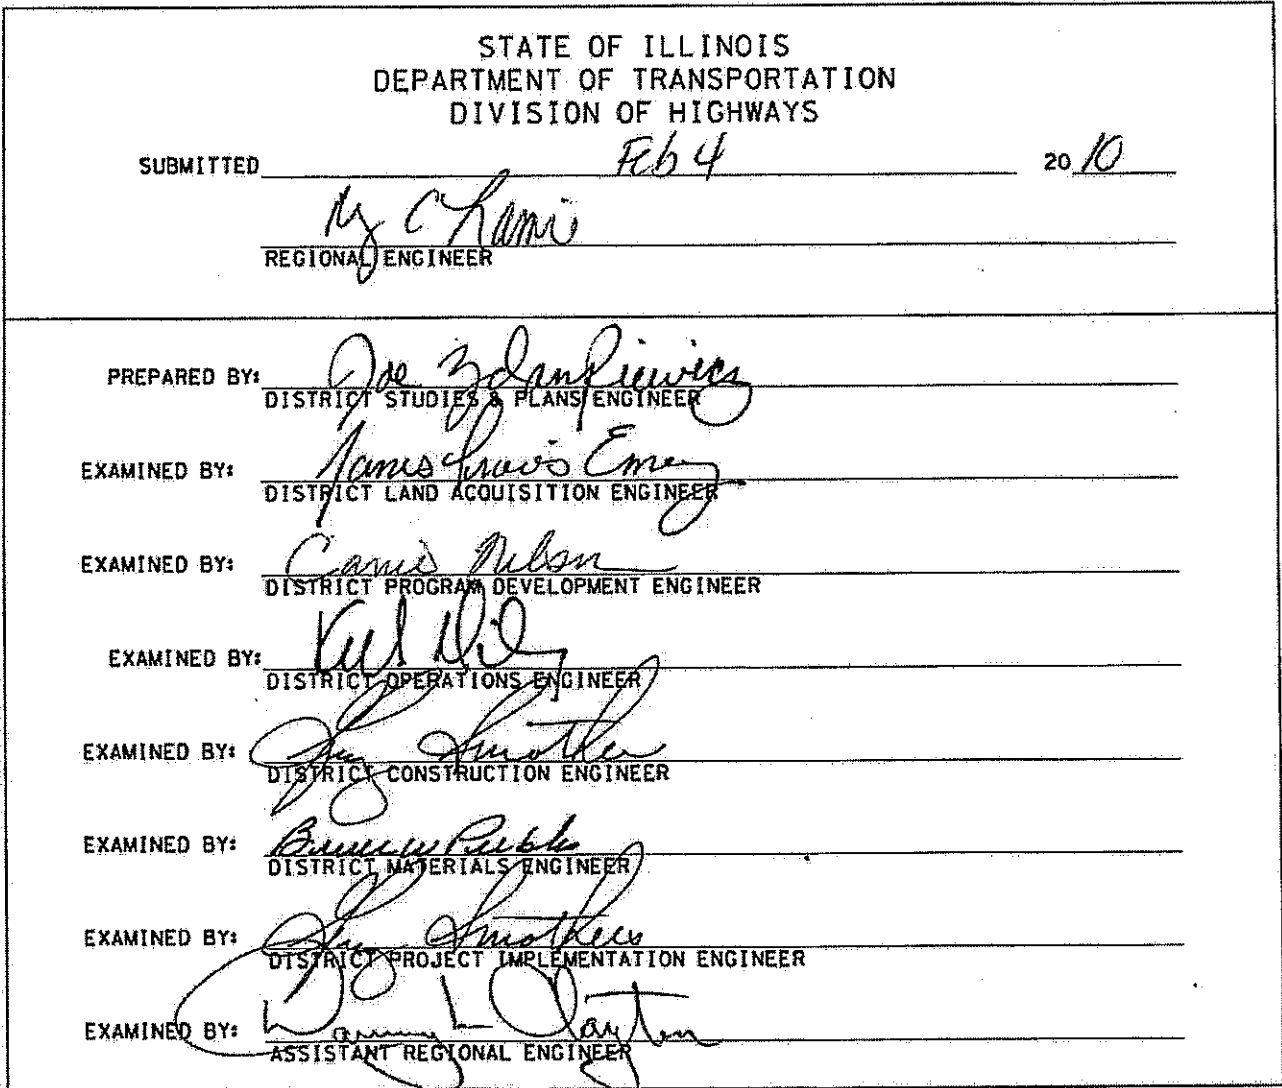 STATE OF ILLINOIS
DEPARTMENT OF TRANSPORTATION
DIVISION OF HIGHWAYS
SUBMITTED Feb 4 20 10
REGIONAL ENGINEER
PREPARED BY: Joe Zdankiewicz
DISTRICT STUDIES & PLANS ENGINEER
EXAMINED BY: James Travis Emery
DISTRICT LAND ACQUISITION ENGINEER
EXAMINED BY: Carrie Nelson
DISTRICT PROGRAM DEVELOPMENT ENGINEER
EXAMINED BY:
DISTRICT OPERATIONS ENGINEER
EXAMINED BY: Smothers
DISTRICT CONSTRUCTION ENGINEER
EXAMINED BY:
DISTRICT MATERIALS ENGINEER
EXAMINED BY: Smothers
DISTRICT PROJECT IMPLEMENTATION ENGINEER
EXAMINED BY: L Clayton
ASSISTANT REGIONAL ENGINEER